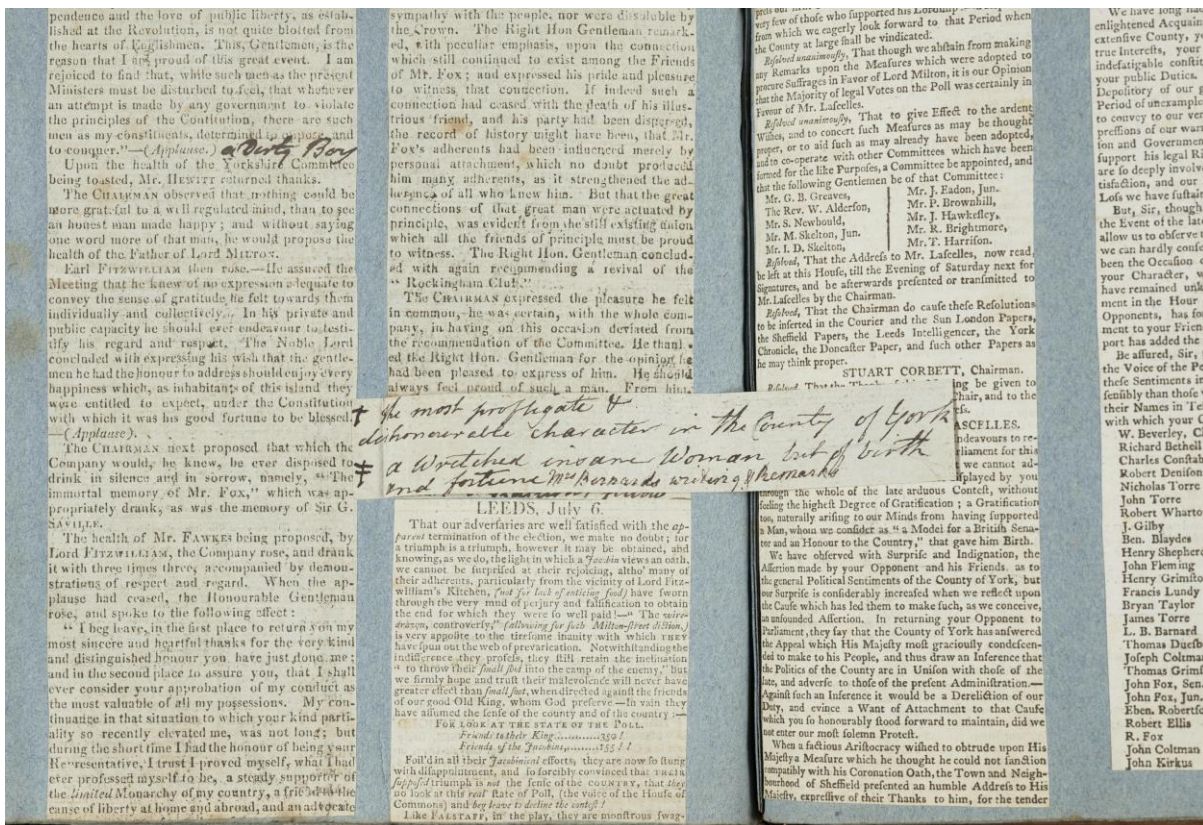 pendence and the love of public liberty, as estab-
lished at the Revolution, is not quite blotted from
the hearts of Englishmen. This, Gentlemen, is the
reason that I am proud of this great event. I am
rejoiced to find that, while such men as the present
Ministers must be disturbed to feel, that whenever
an attempt is made by any government to violate
the principles of the Contitution, there are such
men as my constituents, determined to oppose, and
to conquer."—(Applause.) a Dirty Boy
Upon the health of the Yorkshire Committee
being toasted, Mr. HEWITT returned thanks.
The CHAIRMAN observed that nothing could be
more grateful to a well regulated mind, than to see
an honest man made happy; and without saying
one word more of that man, he would propose the
health of the Father of Lord MILTON.
Earl FITZWILLIAM then rose.—He assured the
Meeting that he knew of no expression adequate to
convey the sense of gratitude he felt towards them
individually and collectively. In his private and
public capacity he should ever endeavour to testi-
fify his regard and respect. The Noble Lord
concluded with expressing his wish that the gentle-
men he had the honour to address should enjoy every
happiness which, as inhabitants of this island they
were entitled to expect, under the Constitution
with which it was his good fortune to be blessed.
—(Applause).
The CHAIRMAN next proposed that which the
Company would, he knew, be ever disposed to
drink in silence and in sorrow, namely, "The
immortal memory of Mr. Fox," which was ap-
propriately drank, as was the memory of Sir G.
SAVILLE.
The health of Mr. FAWKES being proposed, by
Lord FITZWILLIAM, the Company rose, and drank
it with three times three, accompanied by demon-
strations of respect and regard. When the ap-
plause had ceased, the Honourable Gentleman
rose, and spoke to the following effect:
"I beg leave, in the first place to return you my
most sincere and heartful thanks for the very kind
and distinguished honour you have just done me;
and in the second place to assure you, that I shall
ever consider your approbation of my conduct as
the most valuable of all my possessions. My con-
tinuance in that situation to which your kind parti-
ality so recently elevated me, was not long; but
during the short time I had the honour of being your
Representative, I trust I proved myself, what I had
ever professed myself to be, a steady supporter of
the limited Monarchy of my country, a friend of the
cause of liberty at home and abroad, and an advocate
sympathy with the people, nor were dissoluble by
the Crown. The Right Hon Gentleman remark-
ed, with peculiar emphasis, upon the connection
which still continued to exist among the Friends
of Mr. Fox; and expressed his pride and pleasure
to witness that connection. If indeed such a
connection had ceased with the death of his illus-
trious friend, and his party had been dispersed,
the record of history might have been, that Mr.
Fox's adherents had been influenced merely by
personal attachment, which no doubt produced
him many adherents, as it strengthened the ad-
herence of all who knew him. But that the great
connections of that great man were actuated by
principle, was evident from the still existing union
which all the friends of principle must be proud
to witness. The Right Hon. Gentleman conclud-
ed with again recommending a revival of the
"Rockingham Club."
The CHAIRMAN expressed the pleasure he felt
in common, he was certain, with the whole com-
pany, in having on this occasion deviated from
the recommendation of the Committee. He thank-
ed the Right Hon. Gentleman for the opinion he
had been pleased to express of him. He should
always feel proud of such a man. From him,
† the most profligate &
dishonourable character in the County of York
‡ a Wretched insane Woman but of birth
and fortune Mrs Bernards writing & Remarks
LEEDS, July 6.
That our adversaries are well satisfied with the ap-
parent termination of the election, we make no doubt; for
a triumph is a triumph, however it may be obtained, and
knowing, as we do, the light in which a Jacobin views an oath,
we cannot be surprised at their rejoicing, altho' many of
their adherents, particularly from the vicinity of Lord Fitz-
william's Kitchen, (not for lack of enticing food) have sworn
through the very mud of perjury and falsification to obtain
the end for which they were so well paid!—"The wire-
drawn, controversy," (allowing for such Milton-street diction,)
is very apposite to the tiresome inanity with which THEY
have spun out the web of prevarication. Notwithstanding the
indifference they profess, they still retain the inclination
"to throw their small shot into the camp of the enemy," but
we firmly hope and trust their malevolence will never have
greater effect than small shot, when directed against the friends
of our good Old King, whom God preserve—In vain they
have assumed the sense of the county and of the country:—
FOR LOOK AT THE STATE OF THE POLL.
Friends to their King............350!
Friends of the Jacobins,........155!!
Foil'd in all their Jacobinical efforts, they are now so stung
with disappointment, and so forcibly convinced that THEIR
supposed triumph is not the sense of the COUNTRY, that they
no look at this real State of Poll, (the voice of the House of
Commons) and beg leave to decline the contest!
Like FALSTAFF, in the play, they are monstrous swag-
very few of those who supported his Lordship
from which we eagerly look forward to that Period when
the County at large shall be vindicated.
Resolved unanimously, That though we abstain from making
any Remarks upon the Measures which were adopted to
procure Suffrages in Favor of Lord Milton, it is our Opinion
that the Majority of legal Votes on the Poll was certainly in
Favour of Mr. Lascelles.
Resolved unanimously, That to give Effect to the ardent
Wishes, and to concert such Measures as may be thought
proper, or to aid such as may already have been adopted,
and to co-operate with other Committees which have been
formed for the like Purposes, a Committee be appointed, and
that the following Gentlemen be of that Committee:
Mr. G. B. Greaves,
The Rev. W. Alderson,
Mr. S. Newbould,
Mr. M. Skelton, Jun.
Mr. I. D. Skelton,
Mr. J. Eadon, Jun.
Mr. P. Brownhill,
Mr. J. Hawksley,
Mr. R. Brightmore,
Mr. T. Harrison.
Resolved, That the Address to Mr. Lascelles, now read,
be left at this House, till the Evening of Saturday next for
Signatures, and be afterwards presented or transmitted to
Mr. Lascelles by the Chairman.
Resolved, That the Chairman do cause these Resolutions
to be inserted in the Courier and the Sun London Papers,
the Sheffield Papers, the Leeds Intelligencer, the York
Chronicle, the Doncaster Paper, and such other Papers as
he may think proper.
STUART CORBETT, Chairman.
Resolved, That the Thanks of this being be given to
Chair, and to the
ASCELLES.
ndeavours to re-
rliament for this
we cannot ad-
splayed by you
through the whole of the late arduous Contest, without
feeling the highest Degree of Gratification; a Gratification
too, naturally arising to our Minds from having supported
a Man, whom we consider as "a Model for a British Sena-
tor and an Honour to the Country," that gave him Birth.
We have observed with Surprise and Indignation, the
Assertion made by your Opponent and his Friends, as to
the general Political Sentiments of the County of York, but
our Surprise is considerably increased when we reflect upon
the Cause which has led them to make such, as we conceive,
an unfounded Assertion. In returning your Opponent to
Parliament, they say that the County of York has answered
the Appeal which His Majesty most graciously condescen-
ded to make to his People, and thus draw an Inference that
the Politics of the County are in Unison with those of the
late, and adverse to those of the present Administration.—
Against such an Inference it would be a Dereliction of our
Duty, and evince a Want of Attachment to that Cause
which you so honourably stood forward to maintain, did we
not enter our most solemn Protest.
When a factious Aristocracy wished to obtrude upon His
Majesty a Measure which he thought he could not sanction
compatibly with his Coronation Oath, the Town and Neigh-
bourhood of Sheffield presented an humble Address to His
Majesty, expressive of their Thanks to him, for the tender
We have long had
enlightened Acquain
extensive County, yo
true Interests, your
indefatigable constit
your public Duties,
Depository of our g
Period of unexampl
to convey to our ver
pressions of our war
ion and Government
support his legal Ri
are so deeply involve
tisfaction, and our
Loss we have sustain
But, Sir, though
the Event of the late
allow us to observe t
we can hardly consi
been the Occasion o
your Character,
have remained unk
ment in the Hour
Opponents, has fo
ment to your Frien
port has added the
Be assured, Sir,
the Voice of the Pe
these Sentiments i
sensibly than those v
their Names in Te
with which your C
W. Beverley, C
Richard Bethell
Charles Constab
Robert Denison
Nicholas Torre
John Torre
Robert Wharto
J. Gilby
Ben. Blaydes
Henry Shepherd
John Fleming
Henry Grimsto
Francis Lundy
Bryan Taylor
James Torre
L. B. Barnard
Thomas Duesb
Joseph Coltma
Thomas Grims
John Fox, Sen.
John Fox, Jun.
Eben. Robertso
Robert Ellis
R. Fox
John Coltman
John Kirkus